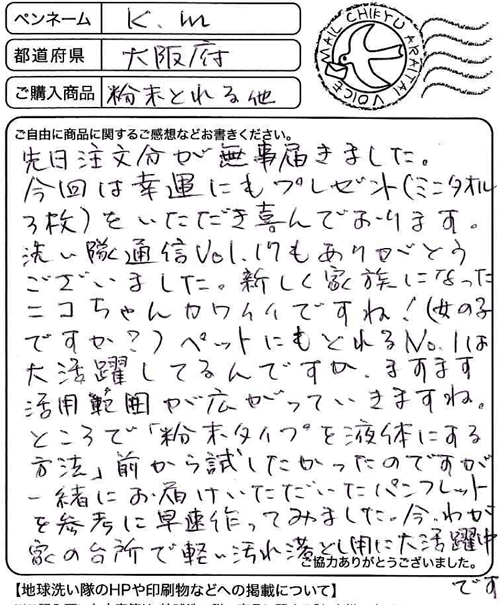 ペンネーム K.m
都道府県 大阪府
ご購入商品 粉末とれる他
MAIL CHIKYU ARAITAI VOICE
ご自由に商品に関するご感想などお書きください。
先日注文分が無事届きました。
今回は幸運にもプレゼント(ミニタオル
3枚)をいただき喜んでおります。
洗い隊通信Vol.17もありがとう
ございました。新しく家族になった
ニコちゃんカワイイですね!(女の子
ですか?)ペットにもとれるNo.1は
大活躍してるんですか、ますます
活用範囲が広がっていきますね。
ところで「粉末タイプを液体にする
方法」前から試したかったのですが
一緒にお届けいただいたパンフレット
を参考に早速作ってみました。今、わが
家の台所で軽い汚れ落とし用に大活躍中
です
ご協力ありがとうございました。
【地球洗い隊のHPや印刷物などへの掲載について】